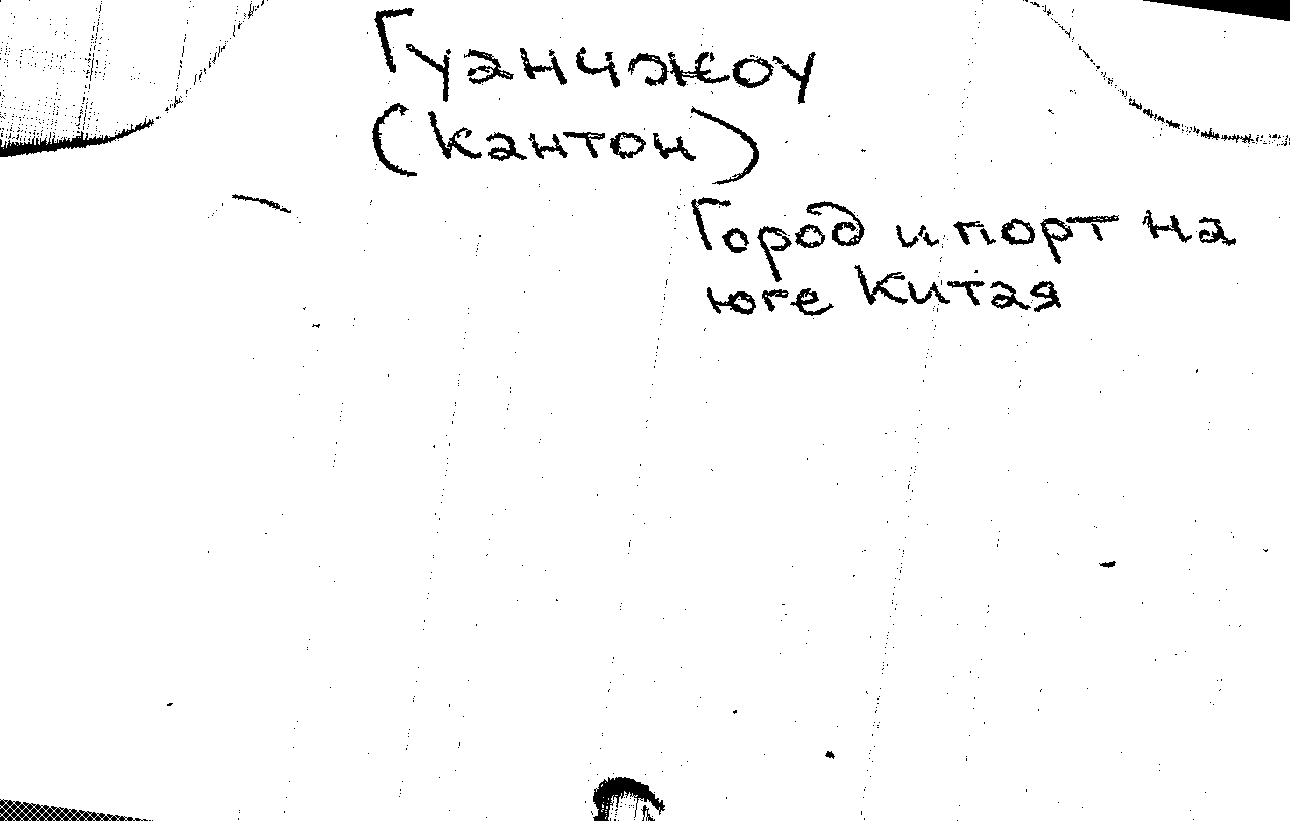 Гуанчжоу
(Кантон)
Город и порт на
юге Китая